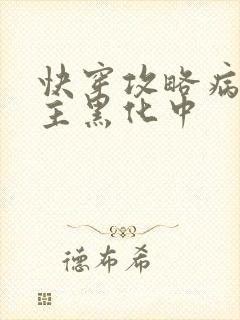 快穿攻略病
主黑化中
德布希